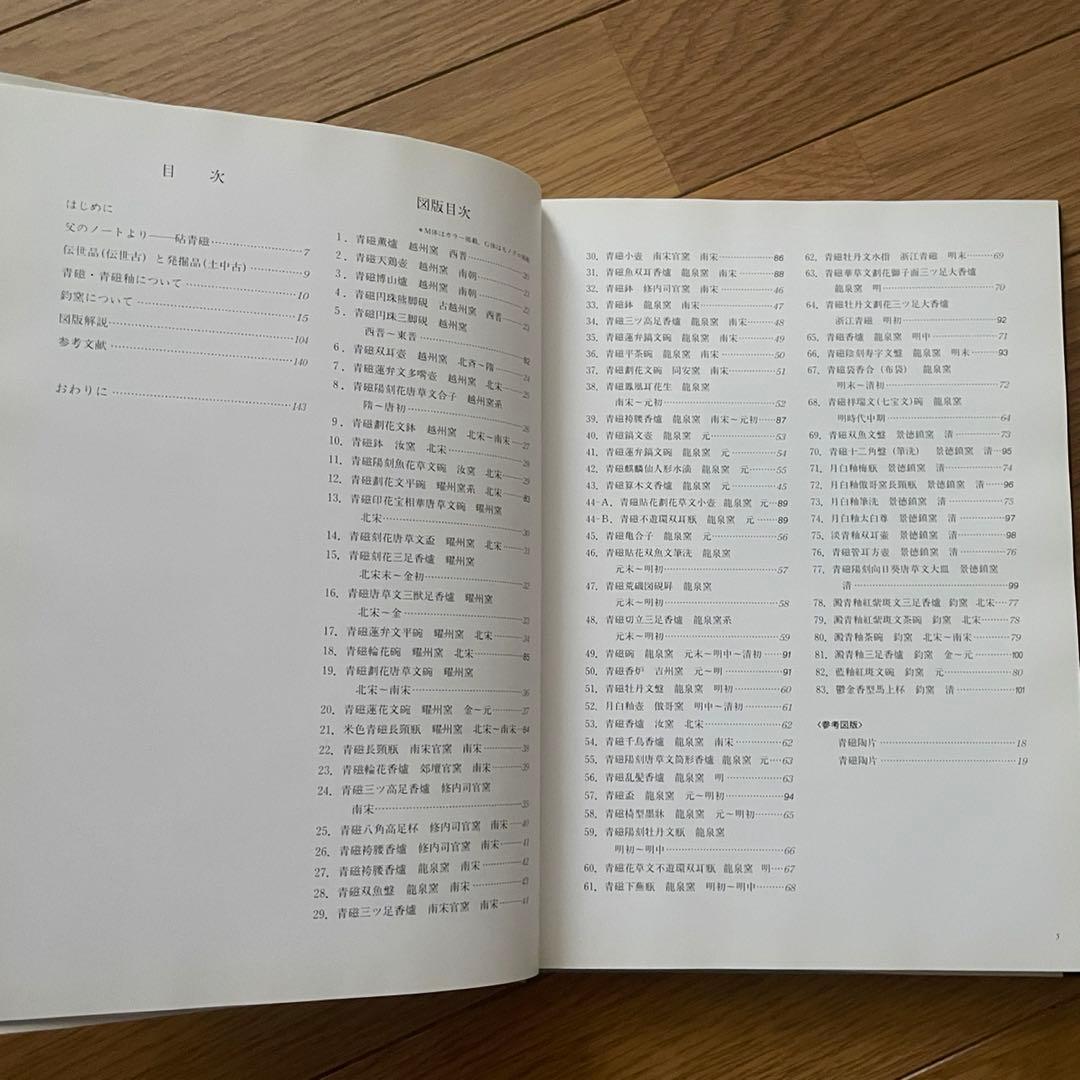 目 次
はじめに
父のノートより——砧青磁…………7
伝世品(伝世古)と発掘品(土中古)…………9
青磁・青磁釉について…………10
鈞窯について…………15
図版解説…………104
参考文献…………140
おわりに…………143
図版目次
＊M体はカラー掲載，G体はモノクロ掲載
1．青磁薫爐 越州窯 西晋…………20
2．青磁天鶏壺 越州窯 南朝…………21
3．青磁博山爐 越州窯 南朝…………22
4．青磁円珠熊脚硯 古越州窯 西晋…………23
5．青磁円珠三脚硯 越州窯
西晋～東晋…………82
6．青磁双耳壺 越州窯 北斉～隋…………24
7．青磁蓮弁文多嘴壺 越州窯 北宋…………25
8．青磁陽刻花唐草文合子 越州窯系
隋～唐初…………26
9．青磁劃花文鉢 越州窯 北宋～南宋…………27
10．青磁鉢 汝窯 北宋…………28
11．青磁陽刻魚花草文碗 汝窯 北宋…………29
12．青磁劃花文平碗 耀州窯系 北宋…………83
13．青磁印花宝相華唐草文碗 耀州窯
北宋…………30
14．青磁刻花唐草文盃 耀州窯 北宋…………31
15．青磁刻花三足香爐 耀州窯
北宋末～金初…………32
16．青磁唐草文三獣足香爐 耀州窯
北宋～金…………33
17．青磁蓮弁文平碗 耀州窯 北宋…………34
18．青磁輪花碗 耀州窯 北宋…………85
19．青磁劃花唐草文碗 耀州窯
北宋～南宋…………36
20．青磁蓮花文碗 耀州窯 金～元…………37
21．米色青磁長頸瓶 耀州窯 北宋～南宋…84
22．青磁長頸瓶 南宋官窯 南宋…………38
23．青磁輪花香爐 郊壇官窯 南宋…………39
24．青磁三ツ高足香爐 修内司官窯
南宋…………35
25．青磁八角高足杯 修内司官窯 南宋……40
26．青磁袴腰香爐 修内司官窯 南宋………41
27．青磁袴腰香爐 龍泉窯 南宋…………42
28．青磁双魚盤 龍泉窯 南宋…………43
29．青磁三ツ足香爐 南宋官窯 南宋………44
30．青磁小壺 南宋官窯 南宋…………86
31．青磁魚双耳香爐 龍泉窯 南宋…………88
32．青磁鉢 修内司官窯 南宋…………46
33．青磁鉢 龍泉窯 南宋…………47
34．青磁三ツ高足香爐 龍泉窯 南宋………48
35．青磁蓮弁鎬文碗 龍泉窯 南宋…………49
36．青磁平茶碗 龍泉窯 南宋…………50
37．青磁劃花文碗 同安窯 南宋…………51
38．青磁鳳凰耳花生 龍泉窯
南宋～元初…………52
39．青磁袴腰香爐 龍泉窯 南宋～元初……87
40．青磁鎬文壺 龍泉窯 元…………53
41．青磁蓮弁鎬文碗 龍泉窯 元…………54
42．青磁麒麟仙人形水滴 龍泉窯 元………55
43．青磁算木文香爐 龍泉窯 元…………45
44-A．青磁貼花劃花草文小壺 龍泉窯 元…89
44-B．青磁不遊環双耳瓶 龍泉窯 元……89
45．青磁亀合子 龍泉窯 元…………56
46．青磁貼花双魚文筆洗 龍泉窯
元末～明初…………57
47．青磁荒磯図硯屛 龍泉窯
元末～明初…………58
48．青磁切立三足香爐 龍泉窯系
元末～明初…………59
49．青磁碗 龍泉窯 元末～明中～清初……91
50．青磁香炉 吉州窯 元～明…………91
51．青磁牡丹文盤 龍泉窯 明初…………60
52．月白釉壺 倣哥窯 明中～清初…………61
53．青磁香爐 汝窯 北宋…………62
54．青磁千鳥香爐 龍泉窯 南宋…………62
55．青磁陽刻唐草文筒形香爐 龍泉窯 元…63
56．青磁乱髪香爐 龍泉窯 明…………63
57．青磁盃 龍泉窯 元～明初…………94
58．青磁椅型墨牀 龍泉窯 元～明初………65
59．青磁陽刻牡丹文瓶 龍泉窯
明初～明中…………66
60．青磁花草文不遊環双耳瓶 龍泉窯 明…67
61．青磁下蕪瓶 龍泉窯 明初～明中………68
62．青磁牡丹文水指 浙江青磁 明末………69
63．青磁華草文劃花獅子面三ツ足大香爐
龍泉窯 明…………70
64．青磁牡丹文劃花三ツ足大香爐
浙江青磁 明初…………92
65．青磁香爐 龍泉窯 明中…………71
66．青磁陰刻寿字文盤 龍泉窯 明末………93
67．青磁袋香合（布袋） 龍泉窯
明末～清初…………72
68．青磁祥瑞文(七宝文)碗 龍泉窯
明時代中期…………64
69．青磁双魚文盤 景徳鎮窯 清…………73
70．青磁十二角盤（筆洗） 景徳鎮窯 清…95
71．月白釉梅瓶 景徳鎮窯 清…………74
72．月白釉倣哥窯長頸瓶 景徳鎮窯 清……96
73．月白釉筆洗 景徳鎮窯 清…………75
74．月白釉太白尊 景徳鎮窯 清…………97
75．淡青釉双耳壷 景徳鎮窯 清…………98
76．青磁管耳方壺 景徳鎮窯 清…………76
77．青磁陽刻向日葵唐草文大皿 景徳鎮窯
清…………99
78．澱青釉紅紫斑文三足香爐 鈞窯 北宋…77
79．澱青釉紅紫斑文茶碗 鈞窯 北宋………78
80．澱青釉茶碗 鈞窯 北宋～南宋…………79
81．澱青釉三足香爐 鈞窯 金～元…………100
82．藍釉紅斑文碗 鈞窯 元…………80
83．鬱金香型馬上杯 鈞窯 清…………101
〈参考図版〉
青磁陶片…………18
青磁陶片…………19
5